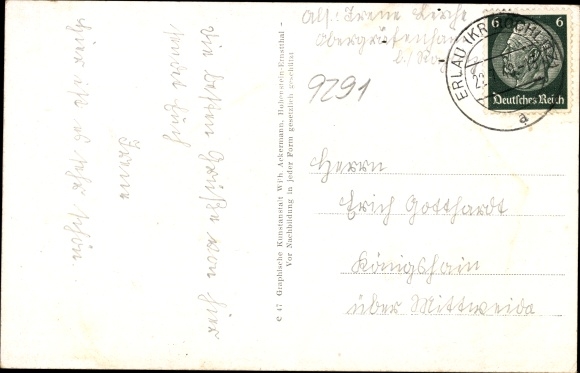 Abs.: Irene
9291
6 6
Deutsches Reich
ERLAU (KR. ROCHLITZ)
a
Die besten Grüße von hier
sendet Euch
Irene
Hier ist es sehr schön.
c 47 Graphische Kunstanstalt Wilh. Ackermann, Hohenstein-Ernstthal -
Vor Nachbildung in jeder Form gesetzlich geschützt
Herrn
Erich Gotthardt
Königshain
über Mittweida